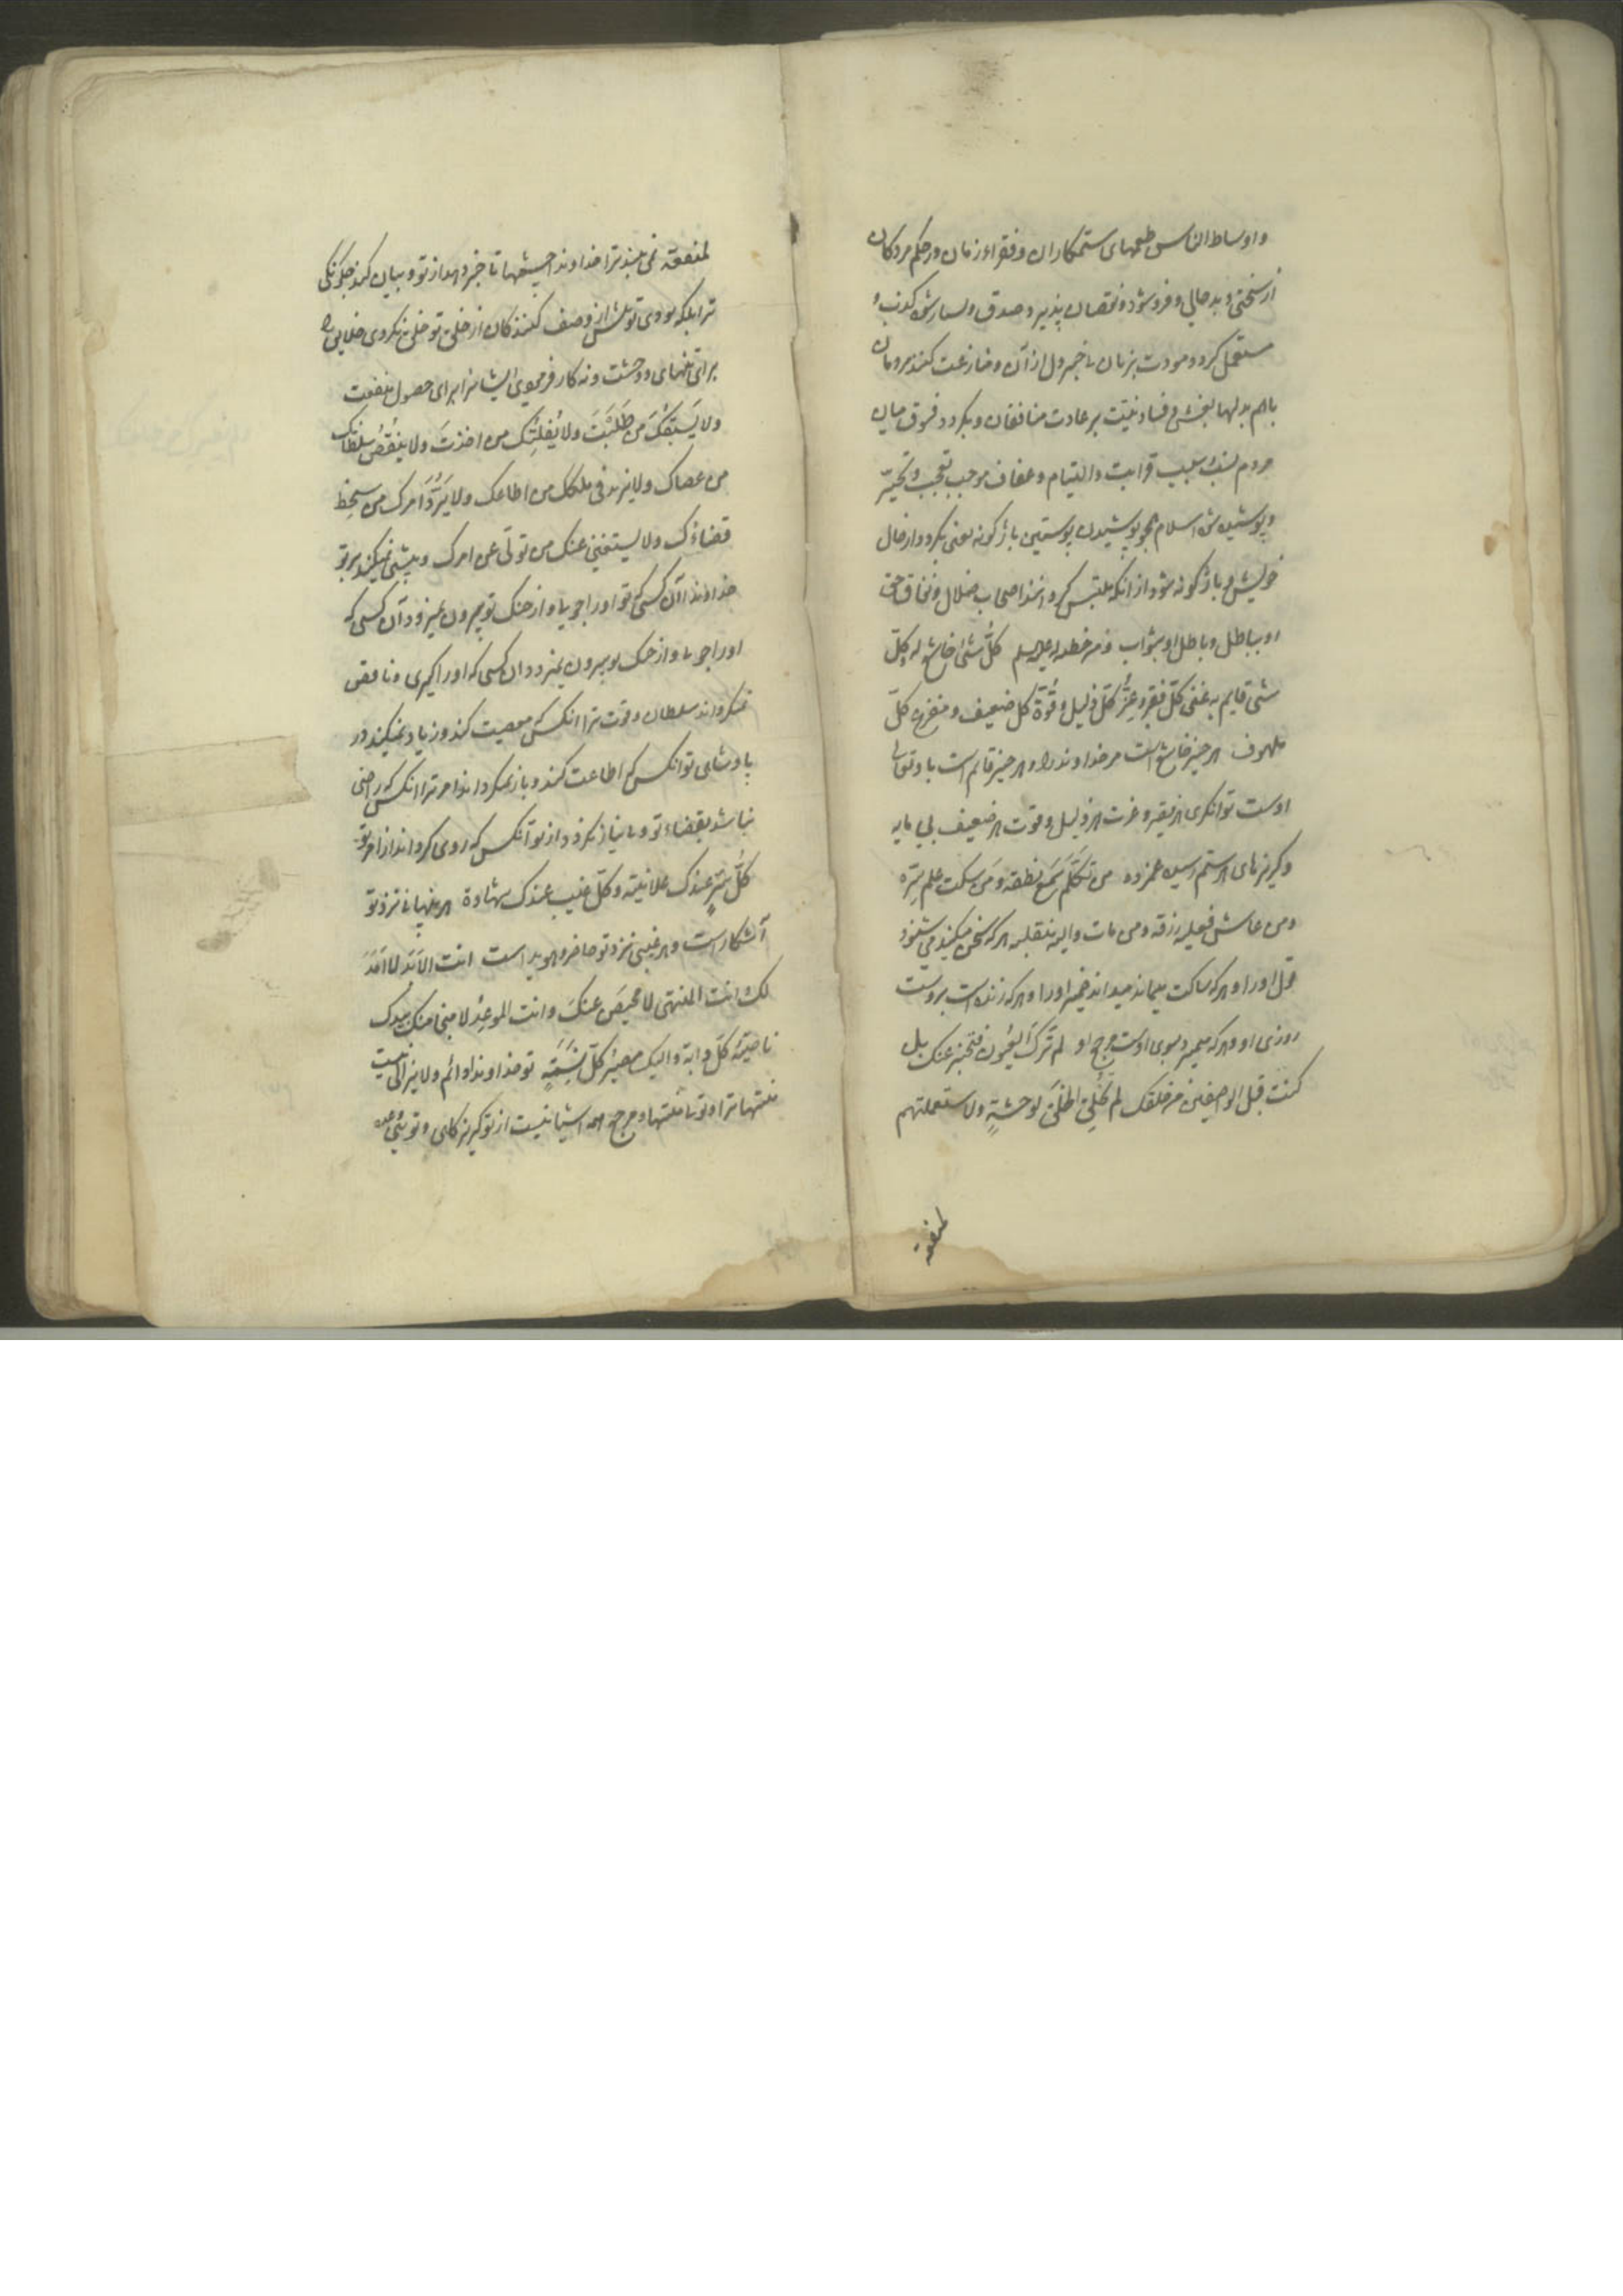 و اوساط الناس طعمهای ستمکاران و فقراء زمان در حکم مردکان
از سختی و بدحالی و فرو شود و نقصان پذیرد صدق و بسیار شود کذب و
مستعمل کردد مودت بزبان نا خبر دل از آن و منازعت کنند مردمان
باهم بدلها بغش و فساد نیت بر عادت منافقان و بکردد فسوق میان
مردم نسب سبب قرابت والتیام و عفاف موجب تعجب و تحیر
و پوشیده شود اسلام همچو پوشیدن پوستین باژکونه یعنی بکردد از حال
خویش و باژکونه شود از آنکه ملتبس کردانند اصحاب ضلال و نفاق حق
او بباطل و باطل او بثواب و من خطبه له علیه السلم کلُّ شئ خاشع له و کلّ
شئ قایم به غنی کلّ فقیر و عزّ کلّ ذلیل و قُوّة کل ضعیف و مفزع کلّ
ملهوف هر چیز خاشع است مر خداوند را و هر چیز قائم است باو تعالی
اوست توانکری هر فقیر و عزت هر ذلیل و قوت هر ضعیف بی مایه
و کریزهای هر ستم رسیده غمزده من تکلّم سمع نطقه و من سکت علم سرّه
و من عاش فعلیه رزقه و من مات والیه منقلبه هر که سخن میکند می شنود
قول او را و هر که ساکت میماند میداند ضمیر او را و هر که زنده است بر اوست
روزی او و هر که میمیرد بسوی اوست مرجع او لم ترک العُیُون فتخبر عنک بل
کنت قبل الواصفین من خلقک لم تخلق الخلق لوحشةٍ ولا استعملتهم
لمنفعة
لمنفعة نمی بیند ترا خداوندا چشمها تا خبر دهد از تو و بیان کند چکونکی
ترا بلکه بودی تو پیش از وصف کنندکان از خلق تو خلق نکردی خلایق را
برای تنهای و وحشت و نه کار فرمودی ایشانرا برای حصول منفعت
ولا یَسبِقُکَ مَن طَلَبتَ ولا یُفلِتُک من اخذتَ ولا ینقُصُ سلطانک
من عصاک ولا یزید فی ملکک من اطاعک ولا یَرُدُّ امرک من سخِط
قضاءک ولا یستغنی عنک من تولّی عن امرک و پیشی نمیکیرد بر تو
خداوندا آن کسی که تو او را جویا و از چنک تو بیرون نمیرود آن کسی که
او را جویا و از چنک تو بیرون نمیرود آن کسی که او را کیری و ناقص
نمیکرداند سلطان و قوت ترا آنکس که معصیت کند و زیاد نمیکند در
پادشاهی تو آنکس که اطاعت کند و باز نمیکرداند امر ترا آنکس که راضی
نباشد بقضاء تو و بی نیاز نکردد از تو آنکس که روی کرداند از امر تو
کلُّ سرٍّ عندک علانیة و کلّ غیب عندک شهادة هر پنهانی نزد تو
آشکار است و هر غیبی نزد تو حاضر و هویداست انت الاَبَد لا اَمَدَ
لک و انت المنتهی لا محیصَ عنکَ و انت الموعِدُ لا منجا منک بیدک
ناصیة کلّ دابة و الیک مصیرُ کلّ نَسَمةٍ تو خداوندا دائم ولا یزالی نیست
منتها ترا و تو یی منتها و مرجع همه اشیا نیست از تو کریزکاهی و توئی وعده